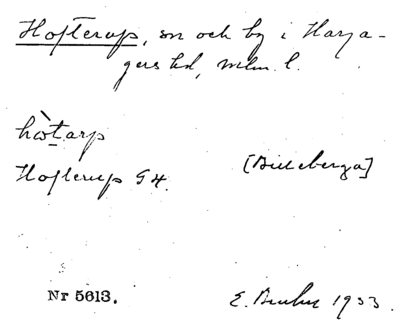 Hofterup, sn och by i Harja-
gers hd, Mlm. l.
hòtarp
Hofterup G4. [Billeberga]
Nr 5613. E. 1933